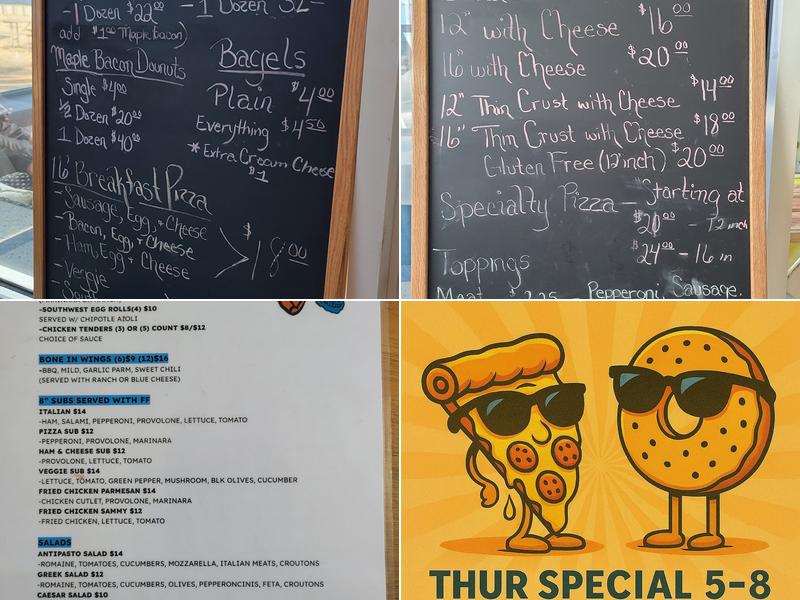 -1 Dozen $22.00
-1 Dozen 32-
add $1.00 Maple Bacon)
Maple Bacon Dounuts
Single $4.00
1/2 Dozen $20.00
1 Dozen $40.00
Bagels
Plain $4.00
Everything $4.50
* Extra Cream Cheese
$1
16" Breakfast Pizza
- Sausage, Egg, + Cheese
- Bacon, Egg, + Cheese
- Ham, Egg + Cheese
- Veggie
$18.00
12" with Cheese $16.00
16" with Cheese $20.00
12" Thin Crust with Cheese $14.00
16" Thin Crust with Cheese $18.00
Gluten Free (12 inch) $20.00
Specialty Pizza - Starting at
$20.00 - 12 inch
$24.00 - 16 in
Toppings
Pepperoni, Sausage,
-SOUTHWEST EGG ROLLS(4) $10
SERVED W/ CHIPOTLE AIOLI
-CHICKEN TENDERS (3) OR (5) COUNT $8/$12
CHOICE OF SAUCE
BONE IN WINGS (6)$9 (12)$16
-BBQ, MILD, GARLIC PARM, SWEET CHILI
(SERVED WITH RANCH OR BLUE CHEESE)
8" SUBS SERVED WITH FF
ITALIAN $14
-HAM, SALAMI, PEPPERONI, PROVOLONE, LETTUCE, TOMATO
PIZZA SUB $12
-PEPPERONI, PROVOLONE, MARINARA
HAM & CHEESE SUB $12
-PROVOLONE, LETTUCE, TOMATO
VEGGIE SUB $14
-LETTUCE, TOMATO, GREEN PEPPER, MUSHROOM, BLK OLIVES, CUCUMBER
FRIED CHICKEN PARMESAN $14
-CHICKEN CUTLET, PROVOLONE, MARINARA
FRIED CHICKEN SAMMY $12
-FRIED CHICKEN, LETTUCE, TOMATO
SALADS
ANTIPASTO SALAD $14
-ROMAINE, TOMATOES, CUCUMBERS, MOZZARELLA, ITALIAN MEATS, CROUTONS
GREEK SALAD $12
-ROMAINE, TOMATOES, CUCUMBERS, OLIVES, PEPPERONCINIS, FETA, CROUTONS
CAESAR SALAD $10
THUR SPECIAL 5-8